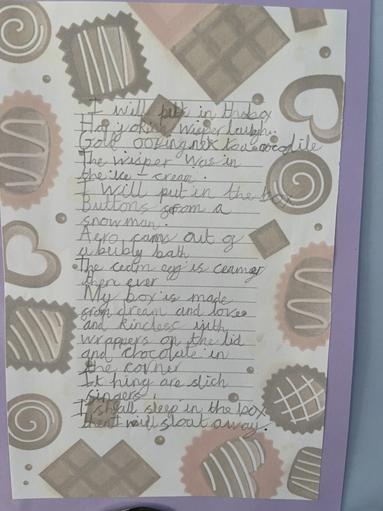 I will put in the box
wisper laugh.
Gold
The wisper was in
the ice - cream.
I will put in the box
buttons from a
snowman.
Aero came out of
a bubly bath
The cream egg is
then ever
My box is made
from dream and love
and kindess with
wrappers on the lid
and chocolate in
the corner
It hing are
fingers
I shall sleep in the box
then I will float away.